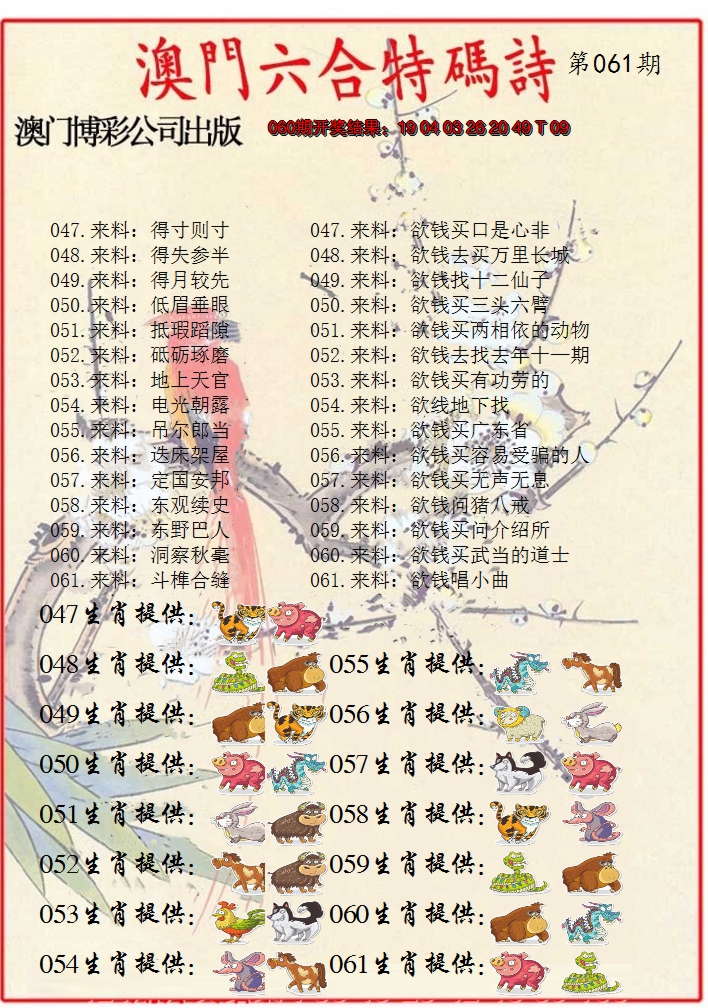 澳門六合特碼詩 第061期
澳门博彩公司出版 060期开奖结果：19 04 03 26 20 49 T 09
047.来料：得寸则寸 047.来料：欲钱买口是心非
048.来料：得失参半 048.来料：欲钱去买万里长城
049.来料：得月较先 049.来料：欲钱找十二仙子
050.来料：低眉垂眼 050.来料：欲钱买三头六臂
051.来料：抵瑕蹈隙 051.来料：欲钱买两相依的动物
052.来料：砥砺琢磨 052.来料：欲钱去找去年十一期
053.来料：地上天官 053.来料：欲钱买有功劳的
054.来料：电光朝露 054.来料：欲线地下找
055.来料：吊尔郎当 055.来料：欲钱买广东省
056.来料：迭床架屋 056.来料：欲钱买容易受骗的人
057.来料：定国安邦 057.来料：欲钱买无声无息
058.来料：东观续史 058.来料：欲钱问猪八戒
059.来料：东野巴人 059.来料：欲钱买问介绍所
060.来料：洞察秋毫 060.来料：欲钱买武当的道士
061.来料：斗榫合缝 061.来料：欲钱唱小曲
047生肖提供：
048生肖提供： 055生肖提供：
049生肖提供： 056生肖提供：
050生肖提供： 057生肖提供：
051生肖提供： 058生肖提供：
052生肖提供： 059生肖提供：
053生肖提供： 060生肖提供：
054生肖提供： 061生肖提供：